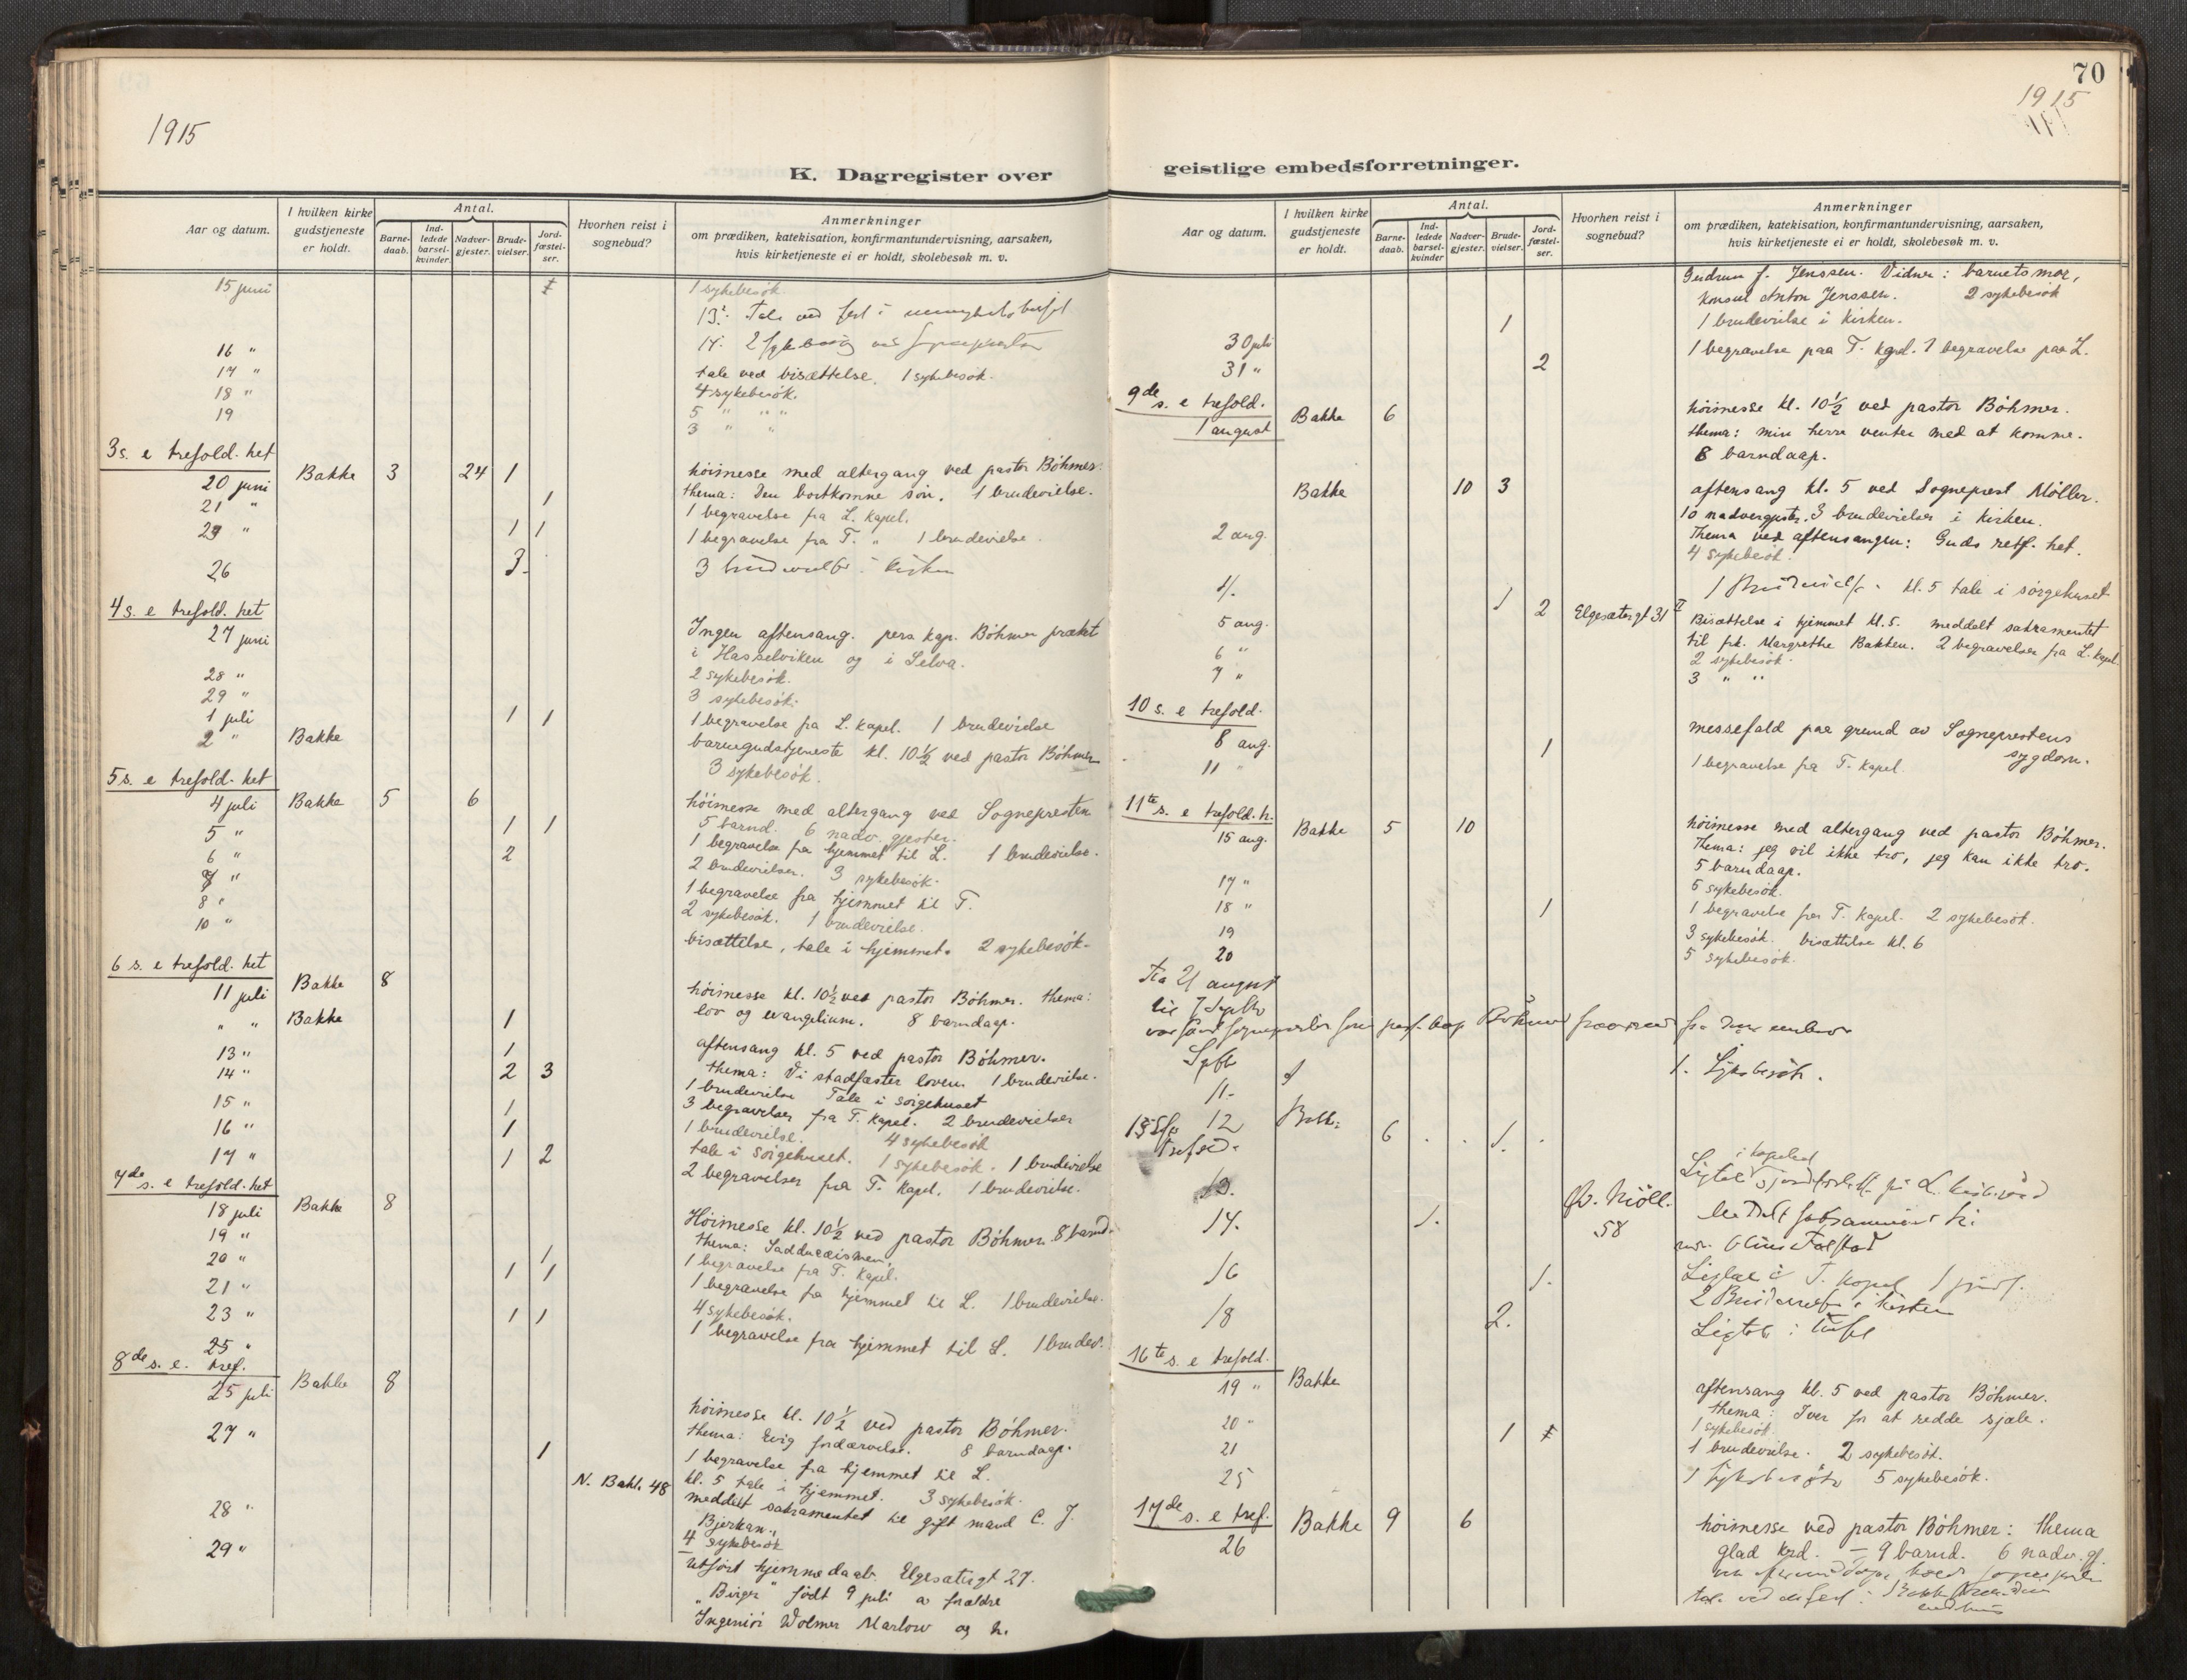 70
1915
1915
K. Dagregister over geistlige embedsforretninger.
Aar og datum.
I hvilken kirke gudstjeneste er holdt.
Antal.
Barne-daab.
Ind-ledede barsel-kvinder.
Nadver-gjester.
Brude-vielser.
Jord-fæstel-ser.
Hvorhen reist i sognebud?
Anmerkninger
om prædiken, katekisation, konfirmantundervisning, aarsaken,
hvis kirketjeneste ei er holdt, skolebesøk m. v.
15 juni 1 sykebesøk.
13: Tale ved fest i
16 " 14: 2
17 " tale ved bisættelse. 1 sykebesøk.
18 " 4 sykebesøk.
19 5 " " "
3 " "
3 s. e trefold. het
20 juni Bakke 3 24 1 høimesse med altergang ved pastor Böhmer.
thema: Den bortkomne søn. 1 brudevielse.
21 " 1 1 begravelse fra L. kapel.
29 " 1 1 1 begravelse fra T. " 1 brudevielse.
26 3. 3 kirken
4 s. e trefold. het
27 juni Ingen aftensang. pers. kap. Böhmer prækt
i Hasselviken og i Selva.
28 " 2 sykebesøk.
29 " 3 sykebesøk.
1 juli 1 1 1 begravelse fra L. kapel. 1 brudevielse
2 " Bakke barnegudstjeneste kl. 10½ ved pastor Böhmer
3 sykebesøk.
5 s. e trefold. het
4 juli Bakke 5 6 høimesse med altergang ved Sognepresten
5 barnd. 6 nadv. gjester.
5 " 1 1 1 begravelse fra hjemmet til L. 1 brudevielse.
6 " 2 2 brudevielser. 3 sykebesøk.
7 " 1 begravelse fra hjemmet til T.
8 " 2 sykebesøk. 1 brudevielse.
10 " bisættelse, tale i hjemmet. 2 sykebesøk.
6 s. e trefold. het
11 juli Bakke 8 høimesse kl. 10½ ved pastor Böhmer. thema:
lov og evangelium. 8 barndaap.
" " Bakke 1 aftensang kl. 5 ved pastor Böhmer.
thema: Vi stadfæster loven. 1 brudevielse.
13 " 1 1 brudevielse Tale i sørgehuset
14 " 2 3 3 begravelser fra T. kapel. 2 brudevielser
15 " 1 1 brudevielse. 4 sykebesøk
16 " 1 tale i sørgehuset. 1 sykebesøk. 1 brudevielse
17 " 1 2 2 begravelser fra T. kapel. 1 brudevielse.
7de s. e trefold. het
18 juli Bakke 8 Høimesse kl. 10½ ved pastor Böhmer. 8 barnd.
thema: Sadducæismen.
19 "
20 " 1 1 begravelse fra T. kapel.
21 " 1 1 1 begravelse fra hjemmet til L. 1 brudevielse.
4 sykebesøk.
23 " 1 1 1 begravelse fra hjemmet til L. 1 brudev.
25 "
8de s. e. tref.
25 juli Bakke 8 høimesse kl. 10½ ved pastor Böhmer.
thema: Evig fordærvelse. 8 barndaap.
27 " 1 1 begravelse fra hjemmet til L.
kl. 5 tale i hjemmet. 3 sykebesøk.
N. Bakl. 48 meddelt sakramentet til gift mand C. J.
Bjerkan.
28 " 4 sykebesøk
29 " utført hjemmedaab. Elgesætergt 27.
"Birger" født 9 juli av forældre
Ingeniør Wolmer Marlow og h.
Gudrun f. Jenssen. Vidner: barnets mor,
konsul Anton Jenssen. 2 sykebesøk
30 juli 1 1 brudevielse i kirken.
31 " 2 1 begravelse paa T. kapel. 1 begravelse paa L.
9de s. e trefold.
1 august Bakke 6 høimesse kl. 10½ ved pastor Böhmer.
thema: min herre venter med at komme.
6 barndaap.
Bakke 10 3 aftensang kl. 5 ved Sogneprest Møller.
10 nadvergjester. 3 brudevielser i kirken.
Thema ved aftensangen: Guds retf. het.
2 aug. 4 sykebesøk.
4/. 1 1 kl. 5 tale i sørgehuset
5 aug. 2 Elgesætergt 31 II Bisættelse i hjemmet kl. 5. meddelt sakramentet
til frk. Margrethe Bakken. 2 begravelser fra L. kapel.
6 " 2 sykebesøk.
7 " 3 " "
10 s. e trefold.
8 aug. messefald paa grund av Sogneprestens
sygdom.
11 " 1 1 begravelse fra T. kapel.
11te s. e trefold. h.
15 aug. Bakke 5 10 høimesse med altergang ved pastor Böhmer.
Thema: jeg vil ikke tro, jeg kan ikke tro.
5 barndaap.
17 " 6 sykebesøk.
18 " 1 1 begravelse fra T. kapel. 2 sykebesøk.
19 3 sykebesøk. bisættelse kl. 6
20 5 sykebesøk.
Fra 21 august
til 7 Septbr
Septb
11. 1.
12 6 1.
13.
14. 1. 58
16 1. T. kapel
18 2. 2 i kirken
16te s. e trefold.
19 " Bakke aftensang kl. 5 ved pastor Böhmer.
thema: Iver for at redde sjæle.
20 " 1 sykebesøk.
21 1 1 brudevielse. 2 sykebesøk.
25 5 sykebesøk.
17de s. e tref.
26 Bakke 9 6 høimesse ved pastor Böhmer: thema
glad kr.d. — 9 barnd. 6 nadv. gj.